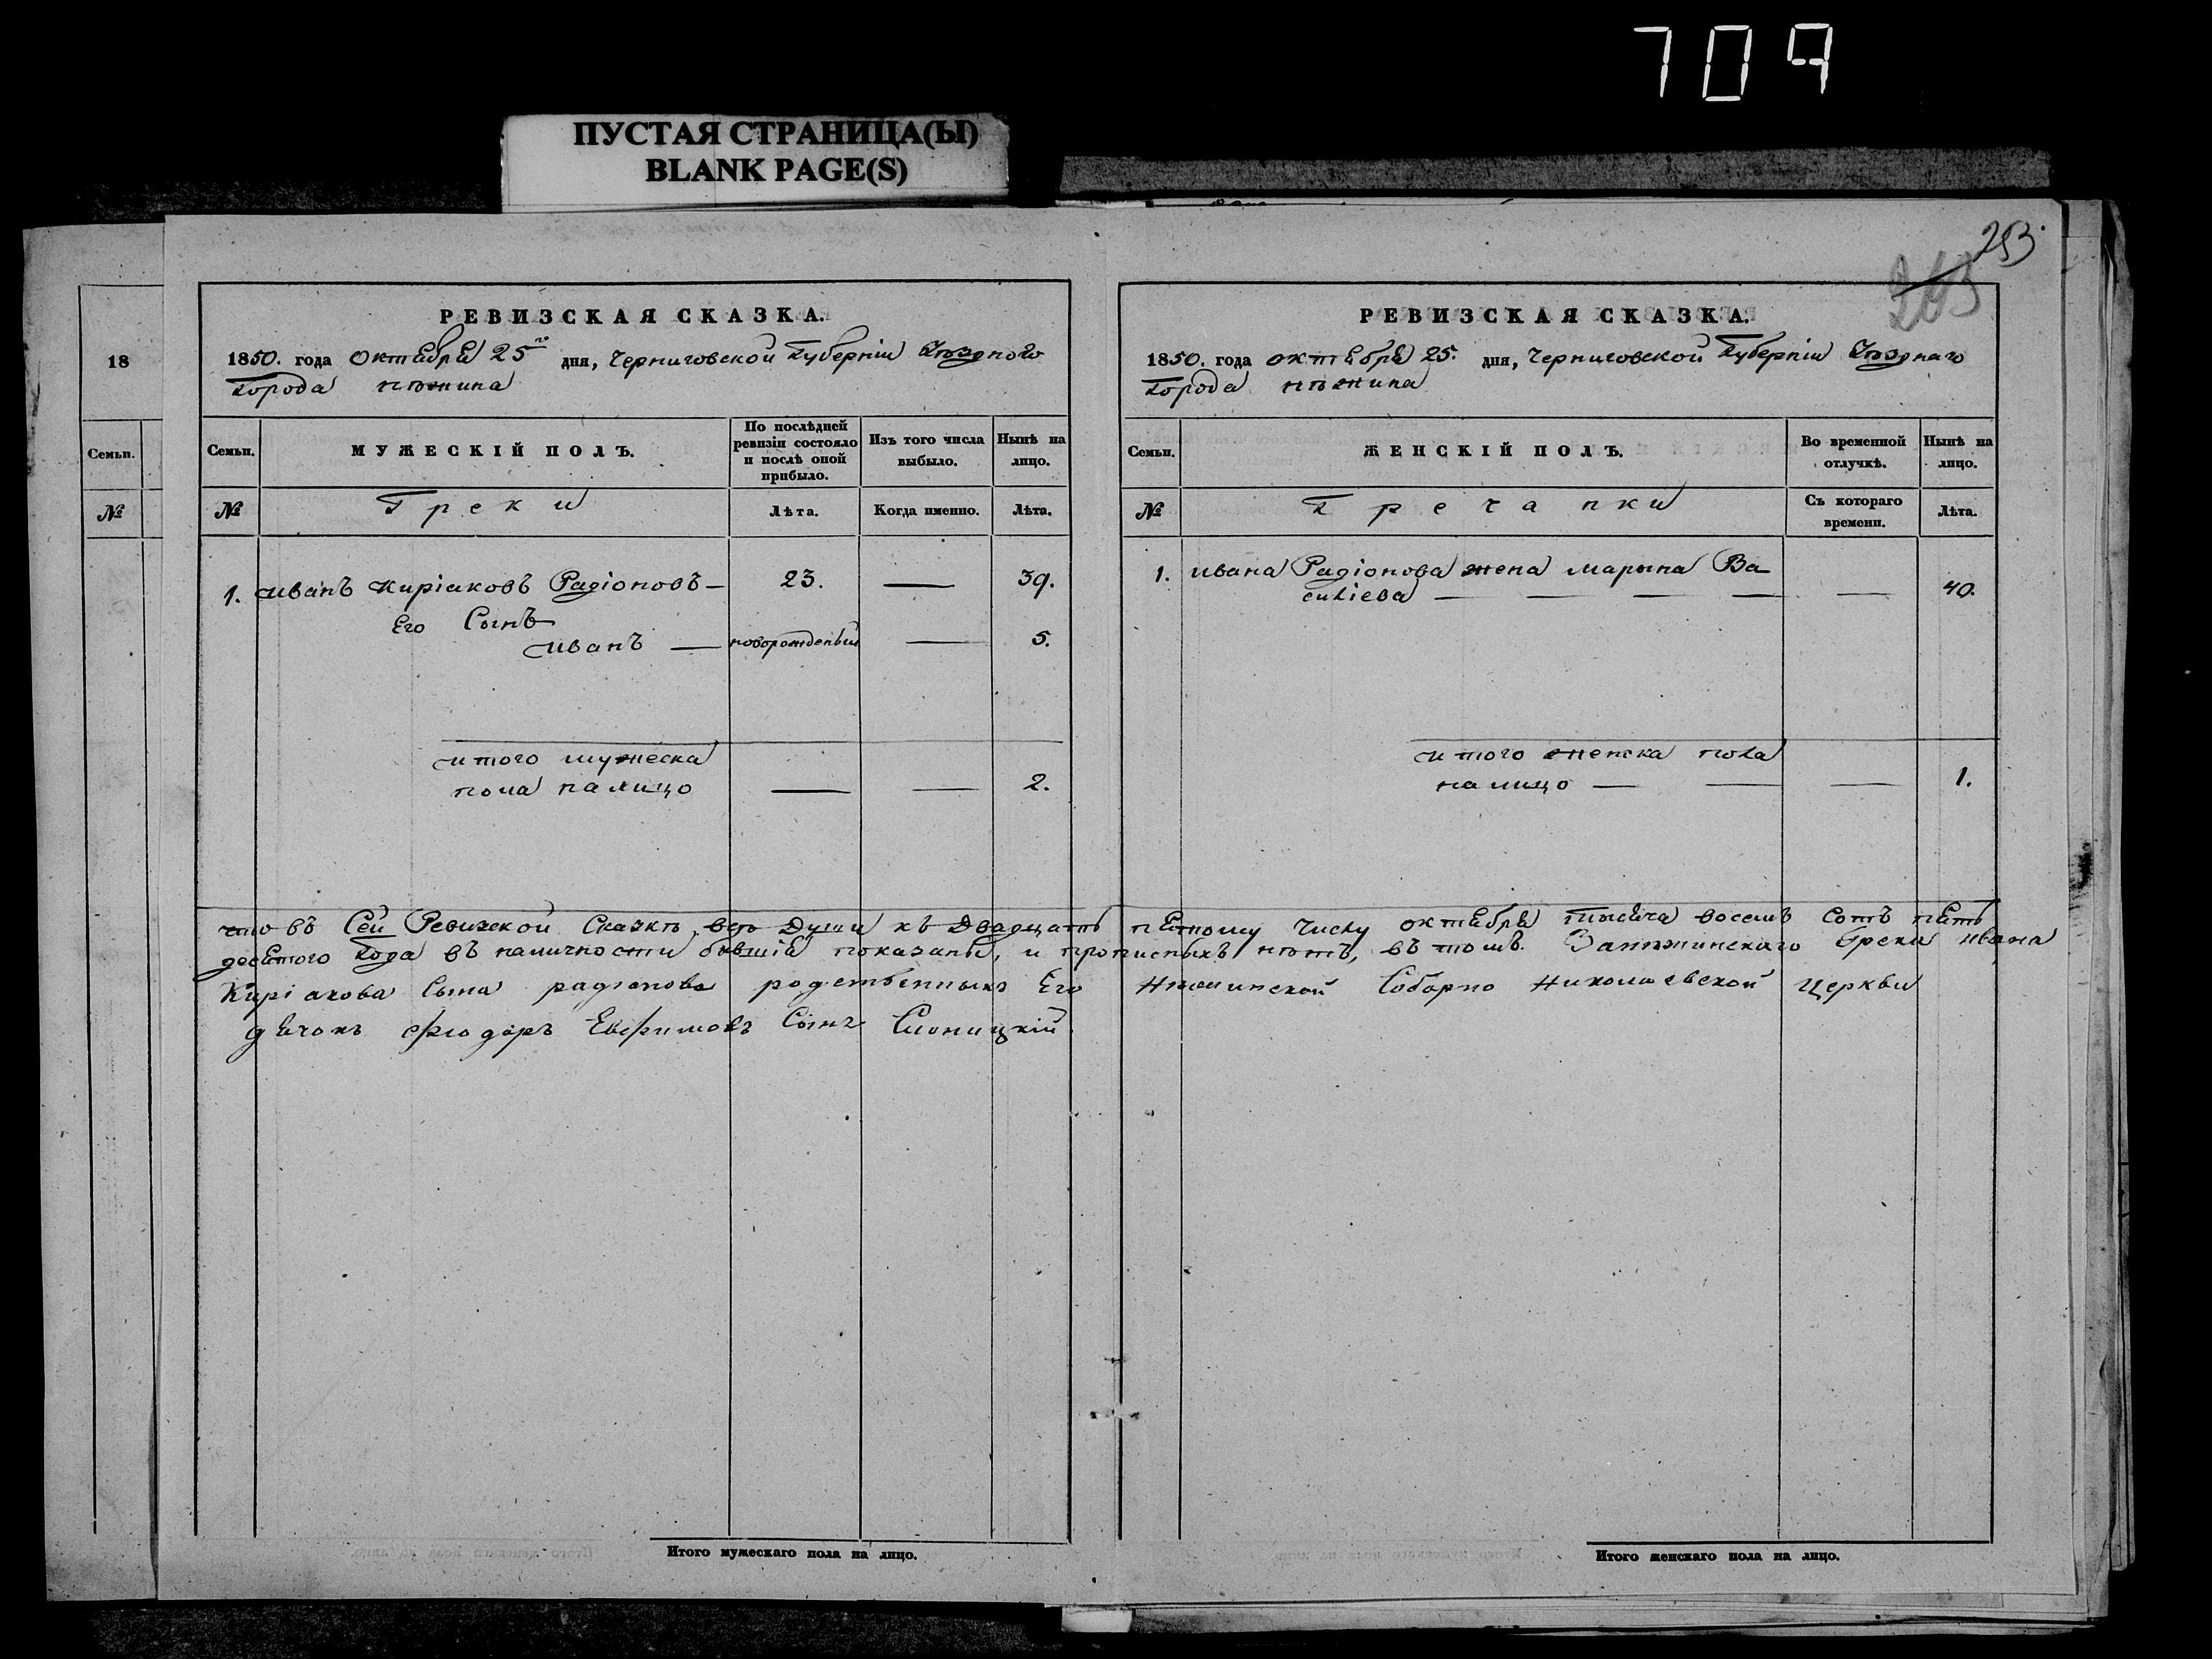 709
ПУСТАЯ СТРАНИЦА(Ы)
BLANK PAGE(S)
253.
263
18
Семьи.
№
РЕВИЗСКАЯ СКАЗКА.
1850. года октября 25го дня, Черниговской Губерніи Уѣздного
Города нѣжина
Семьи.
МУЖЕСКІЙ ПОЛЪ.
По послѣдней ревизіи состояло и послѣ оной прибыло.
Изъ того числа выбыло.
Нынѣ на лицо.
№
Греки
Лѣта.
Когда именно.
Лѣта.
1. иванъ Киріаковъ Радіоновъ — 23. — 39.
Его Сынъ
иванъ — новорожденый — 5.
итого мужеска
пола налицо — — 2.
РЕВИЗСКАЯ СКАЗКА.
1850. года октября 25. дня, Черниговской Губерніи Уѣзднаго
Города нѣжина
Семьи.
ЖЕНСКІЙ ПОЛЪ.
Во временной отлучкѣ.
Нынѣ на лицо.
№
Гречанки
Съ котораго времени.
Лѣта.
1. ивана Радіонова жена марына Ва
силіева — — — — — 40.
итого женска пола
налицо — — — 1.
что въ Сей Ревизской Сказкѣ всѣ Души къ Двадцать пятому Числу октября тысяча восемъ сотъ пять
десятого Года въ наличности бывшія показаны, и прописныхъ нѣтъ, въ томъ. За нѣжинскаго Грека ивана
Киріакова Сына радіонова родственныхъ Его Нѣжинской Соборно Николаевской Церкви
дьячокъ Ефимовъ Сынъ
Итого мужескаго пола на лицо.
Итого женскаго пола на лицо.